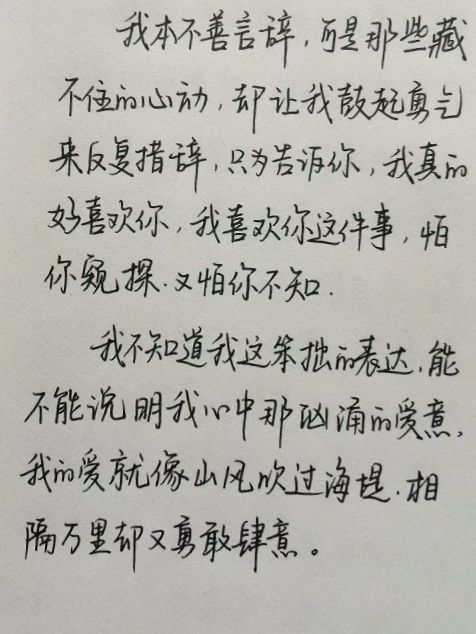 我本不善言辞，可是那些藏
不住的心动，却让我鼓起勇气
来反复措辞，只为告诉你，我真的
好喜欢你，我喜欢你这件事，怕
你窥探．又怕你不知．
我不知道我这笨拙的表达，能
不能说明我心中那汹涌的爱意，
我的爱就像山风吹过海堤．相
隔万里却又勇敢肆意。